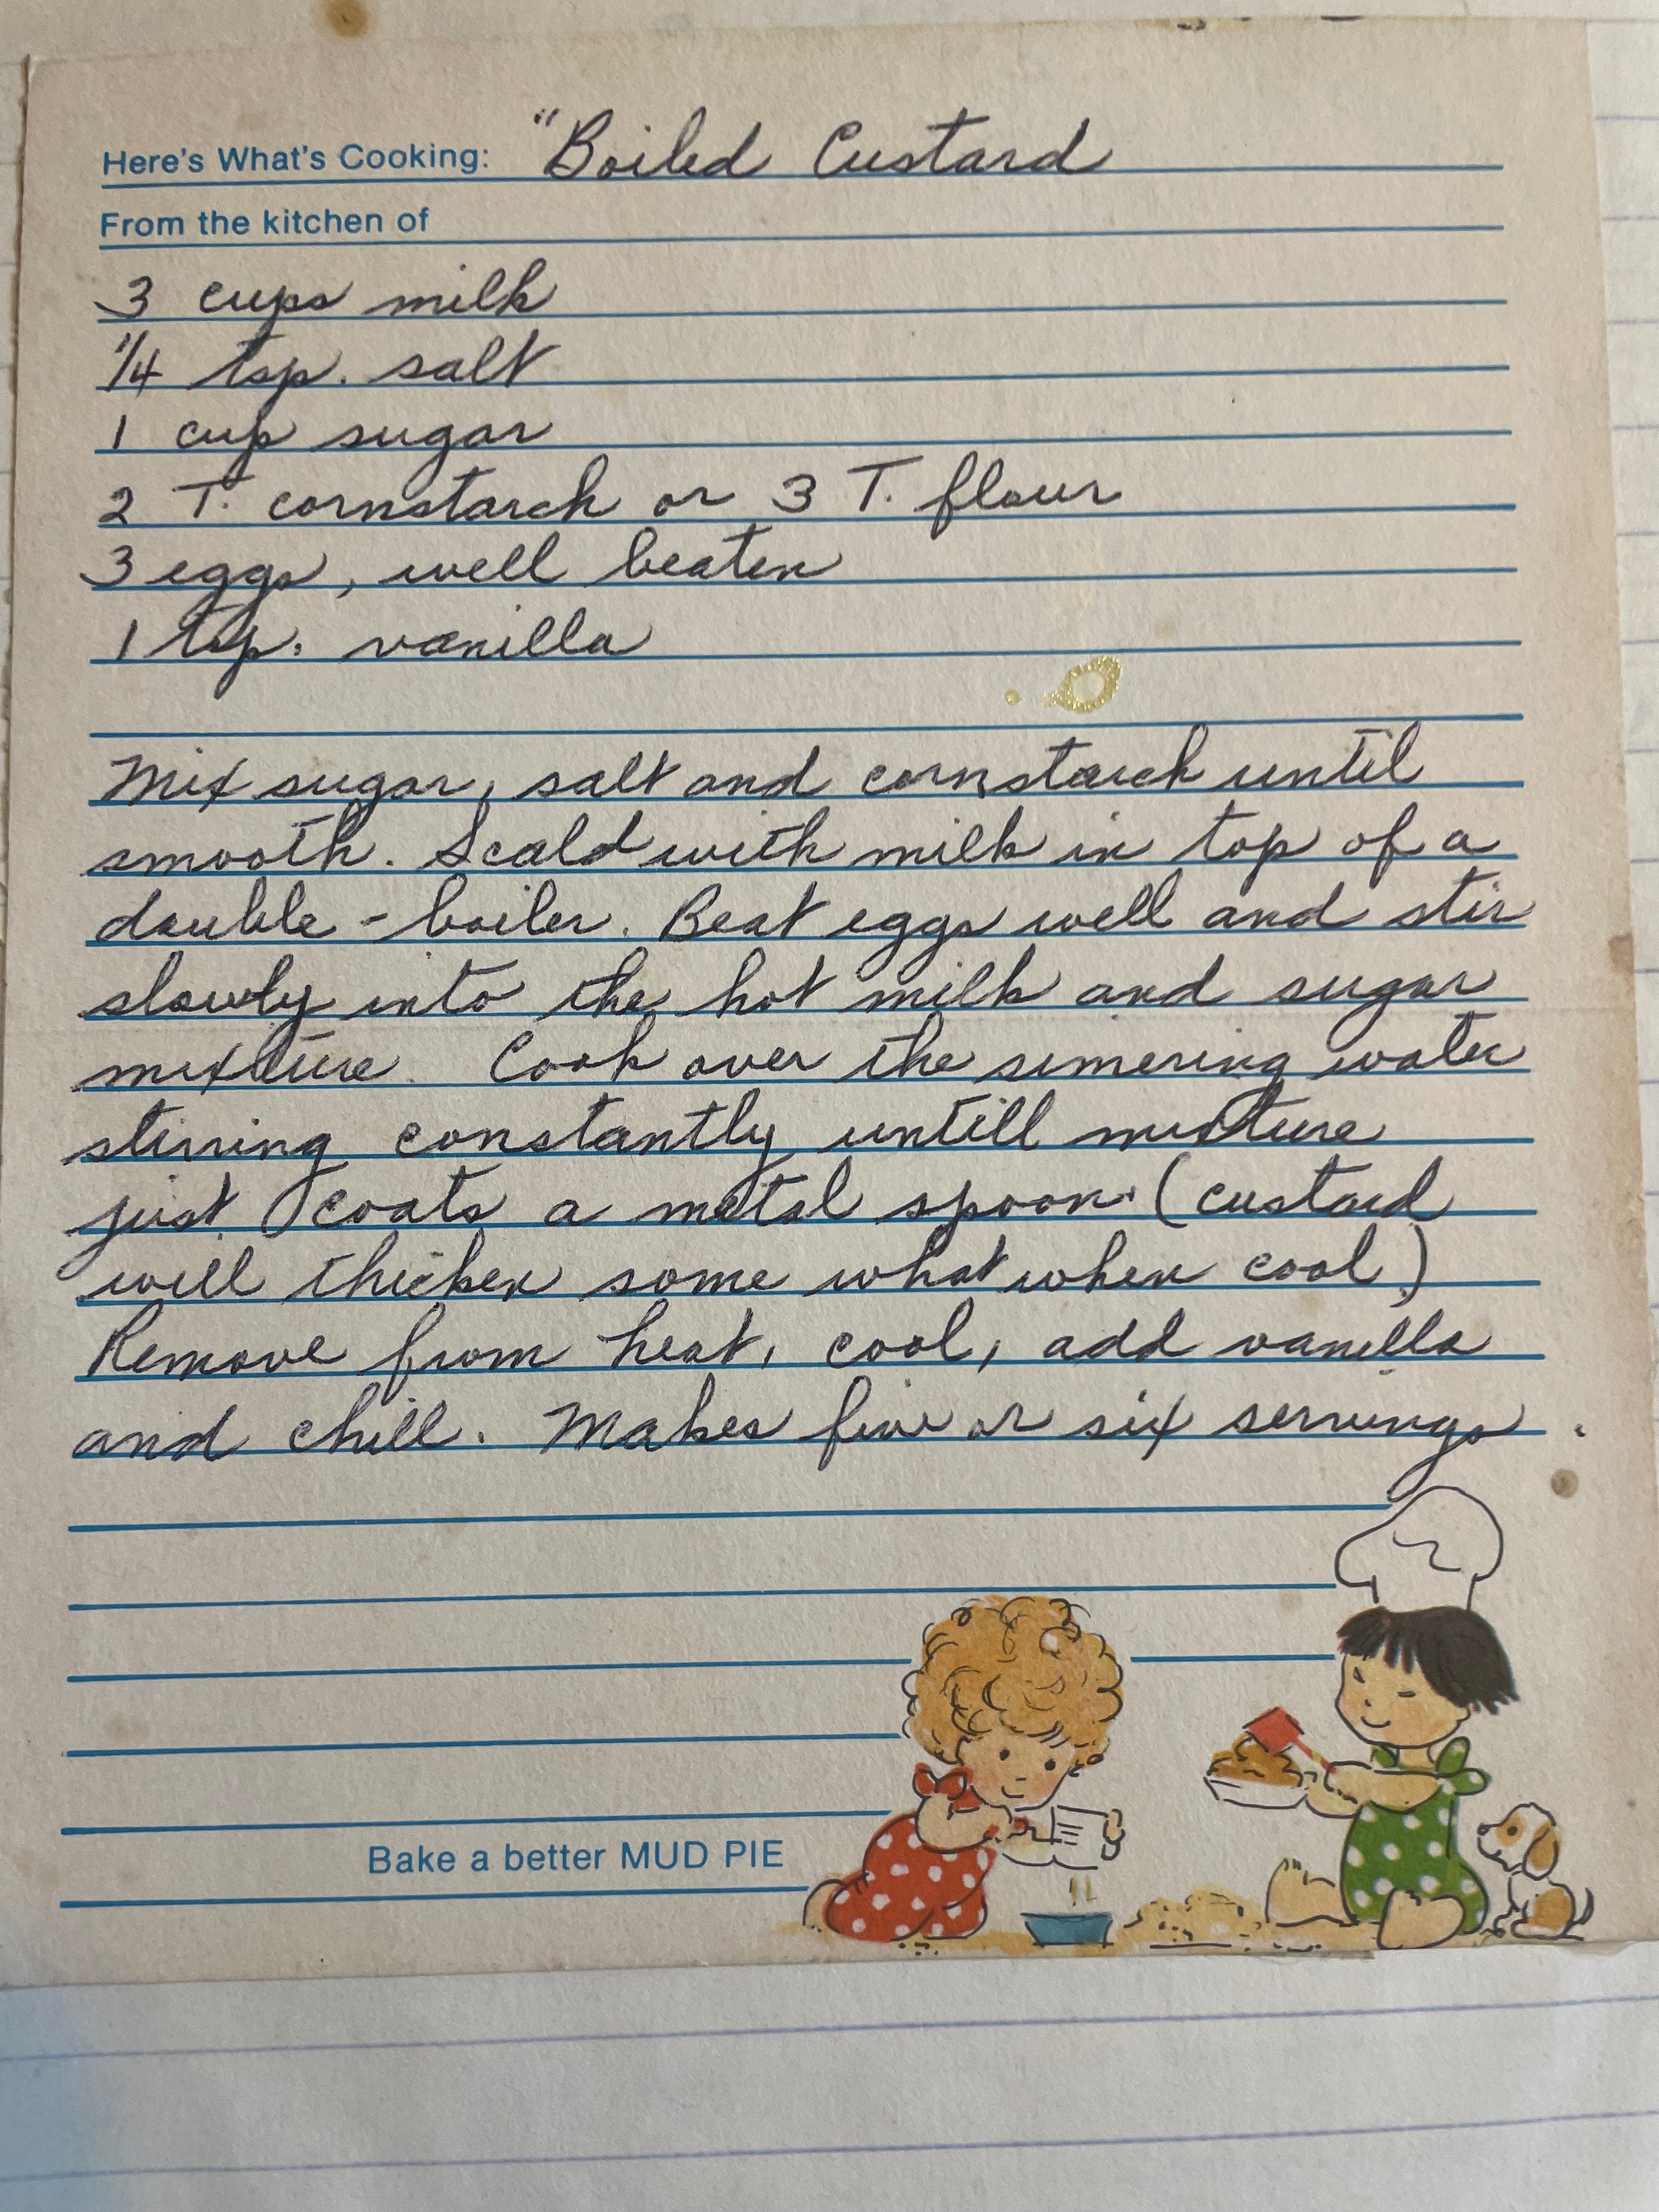 Here's What's Cooking: "Boiled Custard
From the kitchen of
3 cups milk
1/4 tsp. salt
1 cup sugar
2 T. cornstarch or 3 T. flour
3 eggs, well beaten
1 tsp. vanilla
Mix sugar, salt and cornstarch until
smooth. Scald with milk in top of a
double-boiler. Beat eggs well and stir
slowly into the hot milk and sugar
mixture. Cook over the simering water
stirring constantly untill mixture
just coats a metal spoon. (custard
will thicken some what when cool)
Remove from heat, cool, add vanilla
and chill. Makes five or six servings.
Bake a better MUD PIE